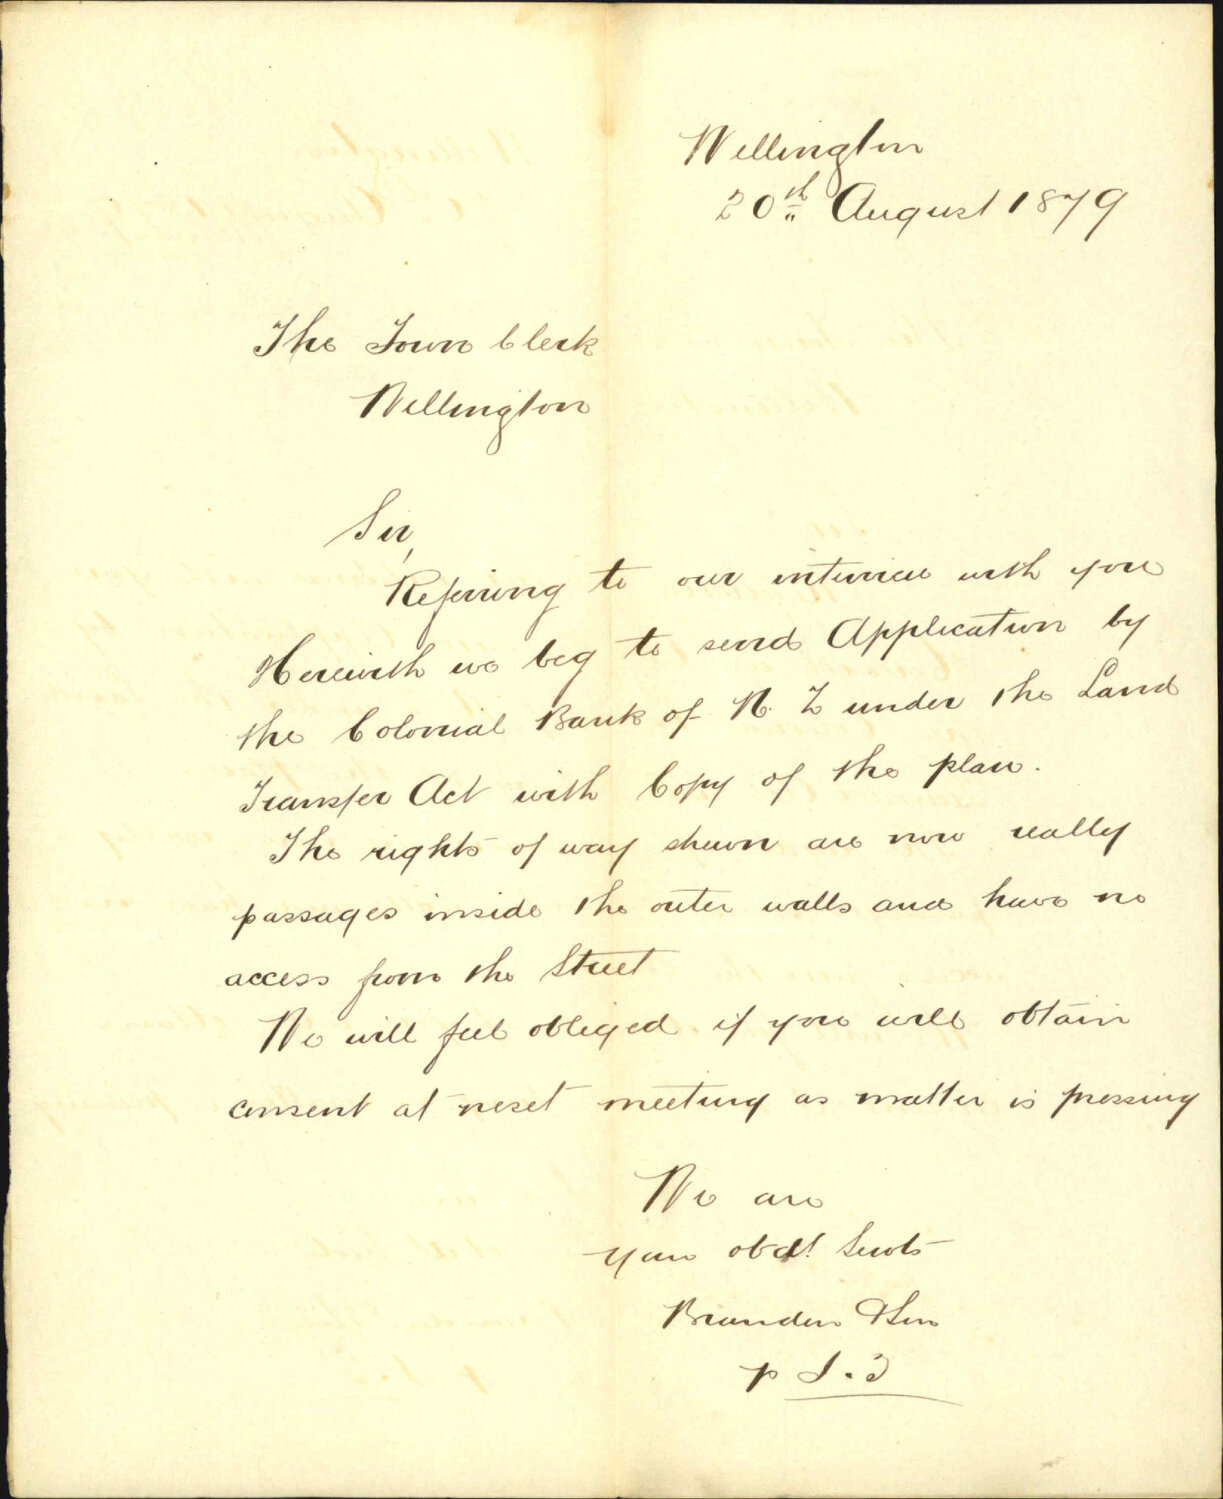 Wellington
20th August 1879
The Town Clerk
Wellington
Sir,
Referring to our interview with you
Herewith we beg to send Application by
the Colonial Bank of N. Z under the Land
Transfer Act with Copy of the plan.
The rights of way shewn are now really
passages inside the outer walls and have no
access from the Street
We will feel obliged if you will obtain
consent at next meeting as matter is pressing
We are
Your obdt Servts
Brandon & Son
p